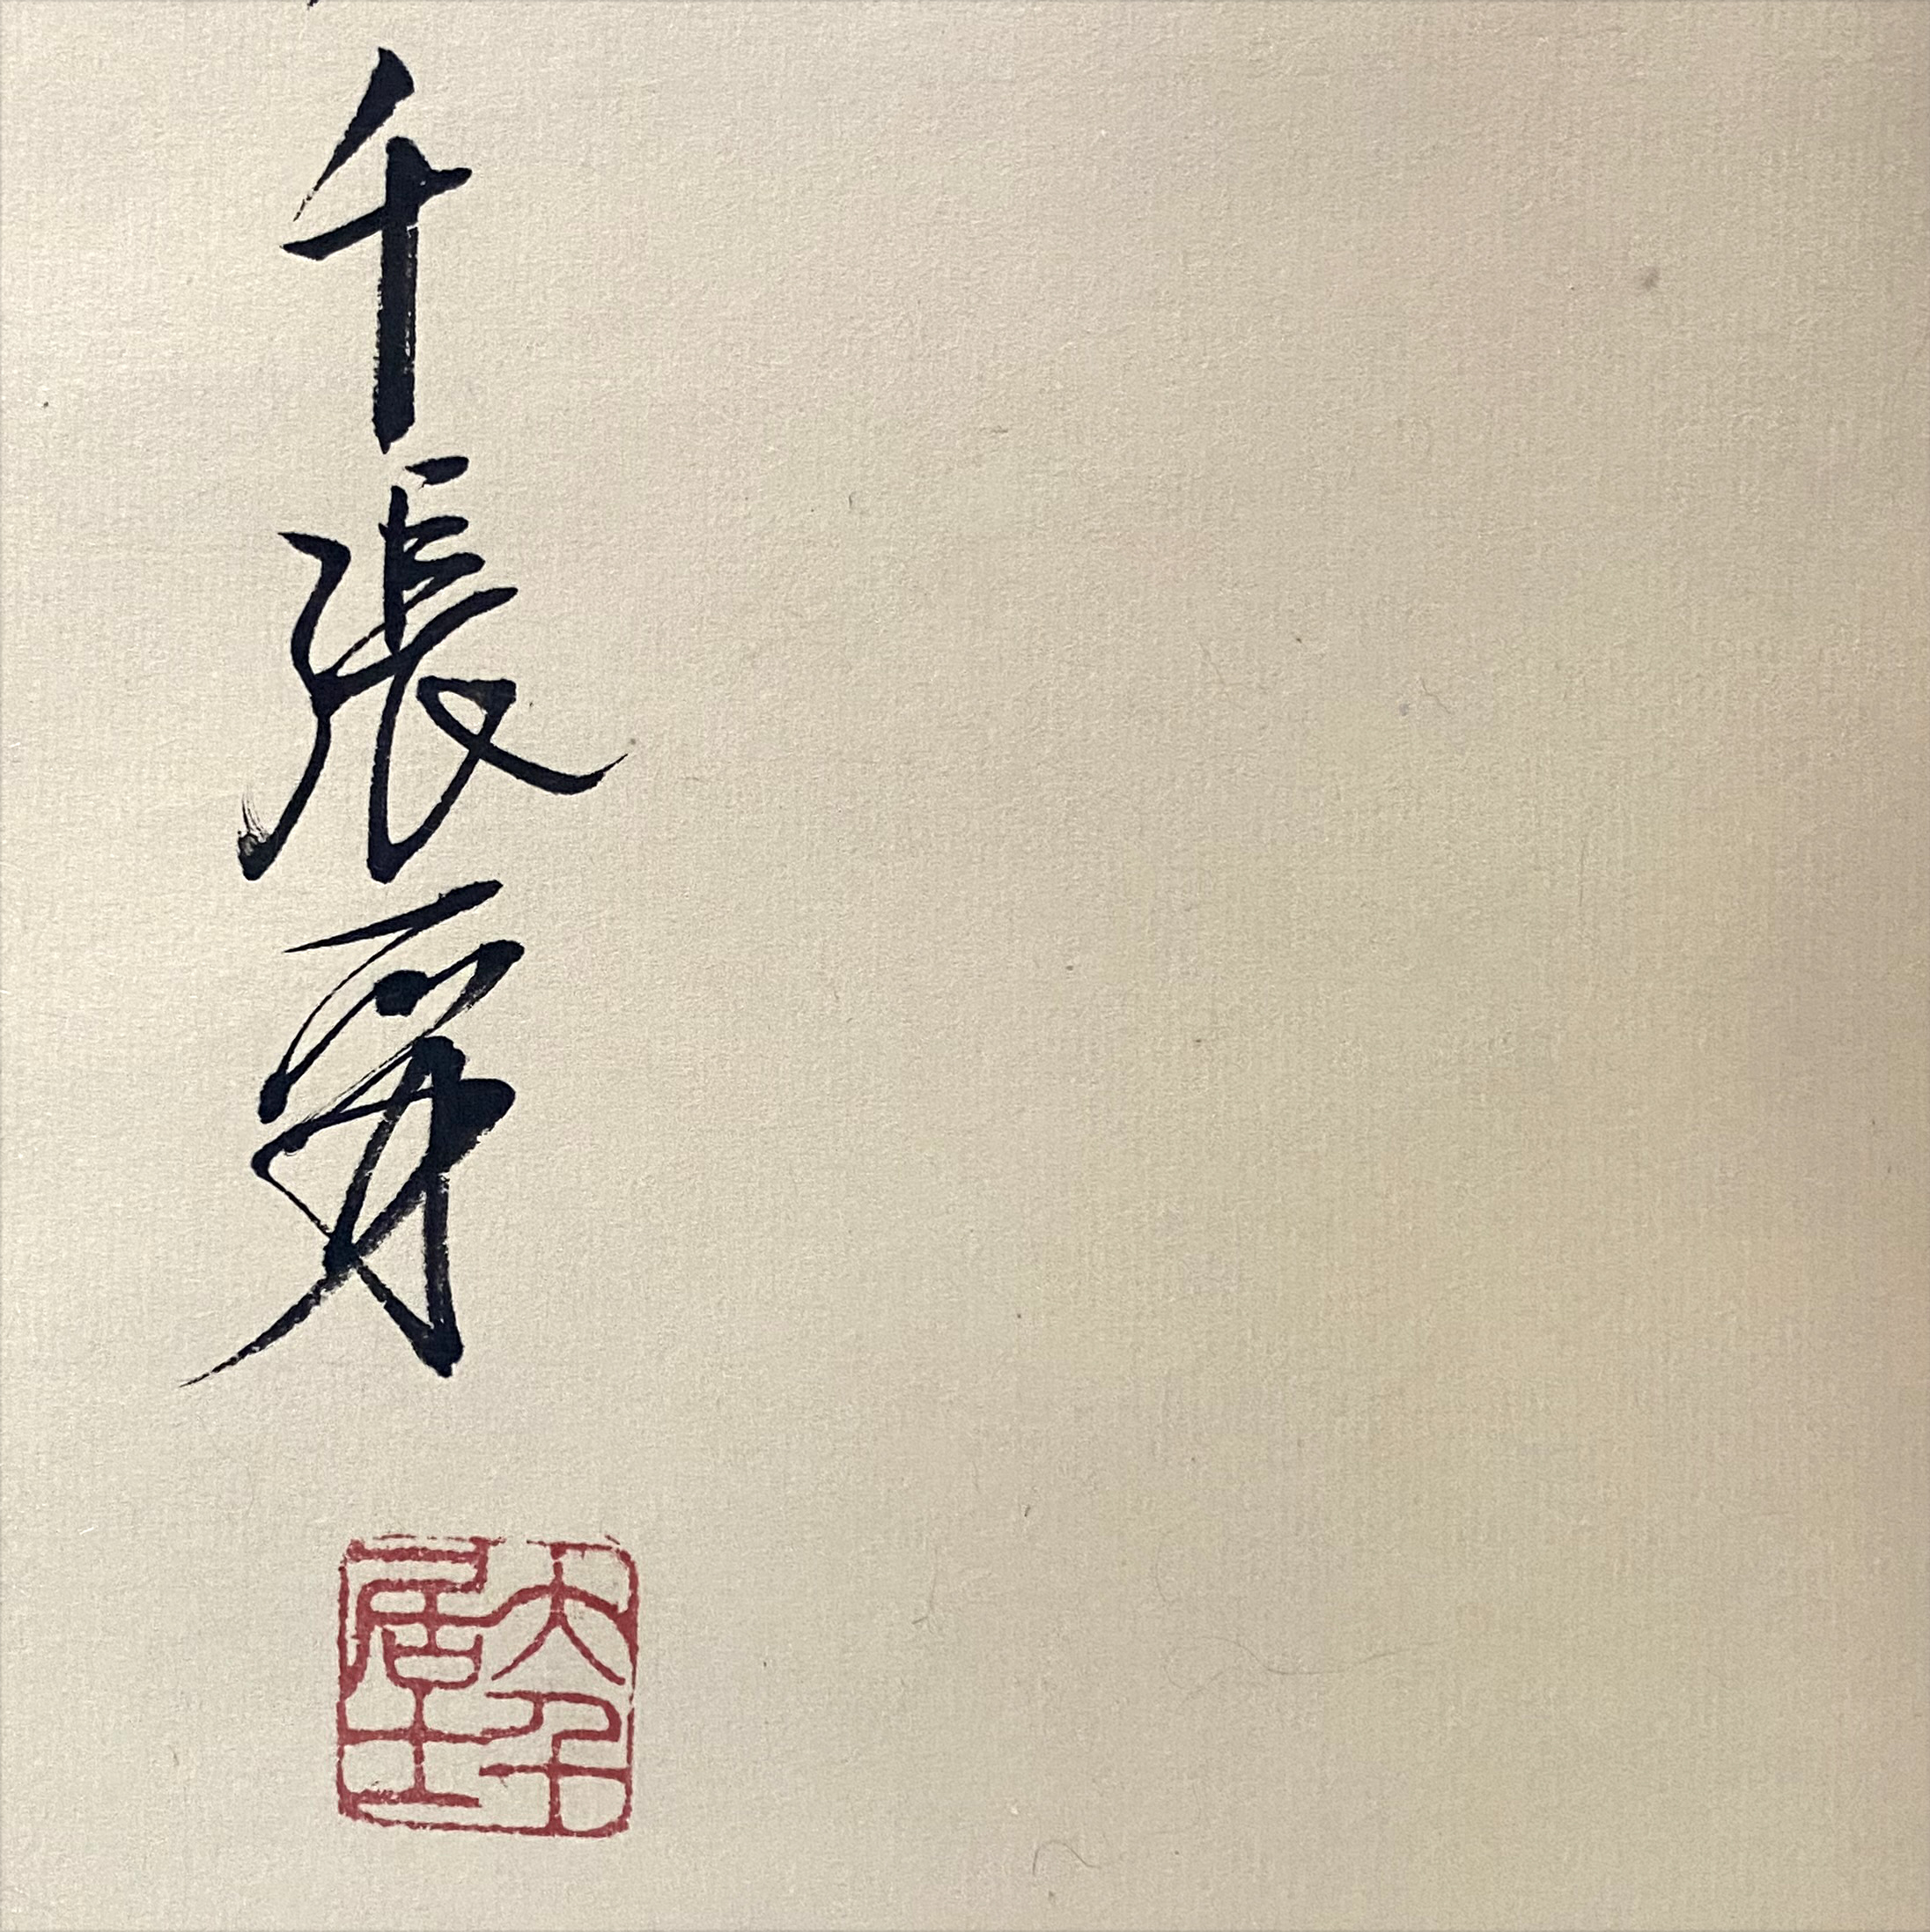 千張爰
大千
居士